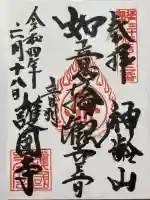 奉拝
神齢山
如意輪観世音
令和四年
二月十八日
護国寺